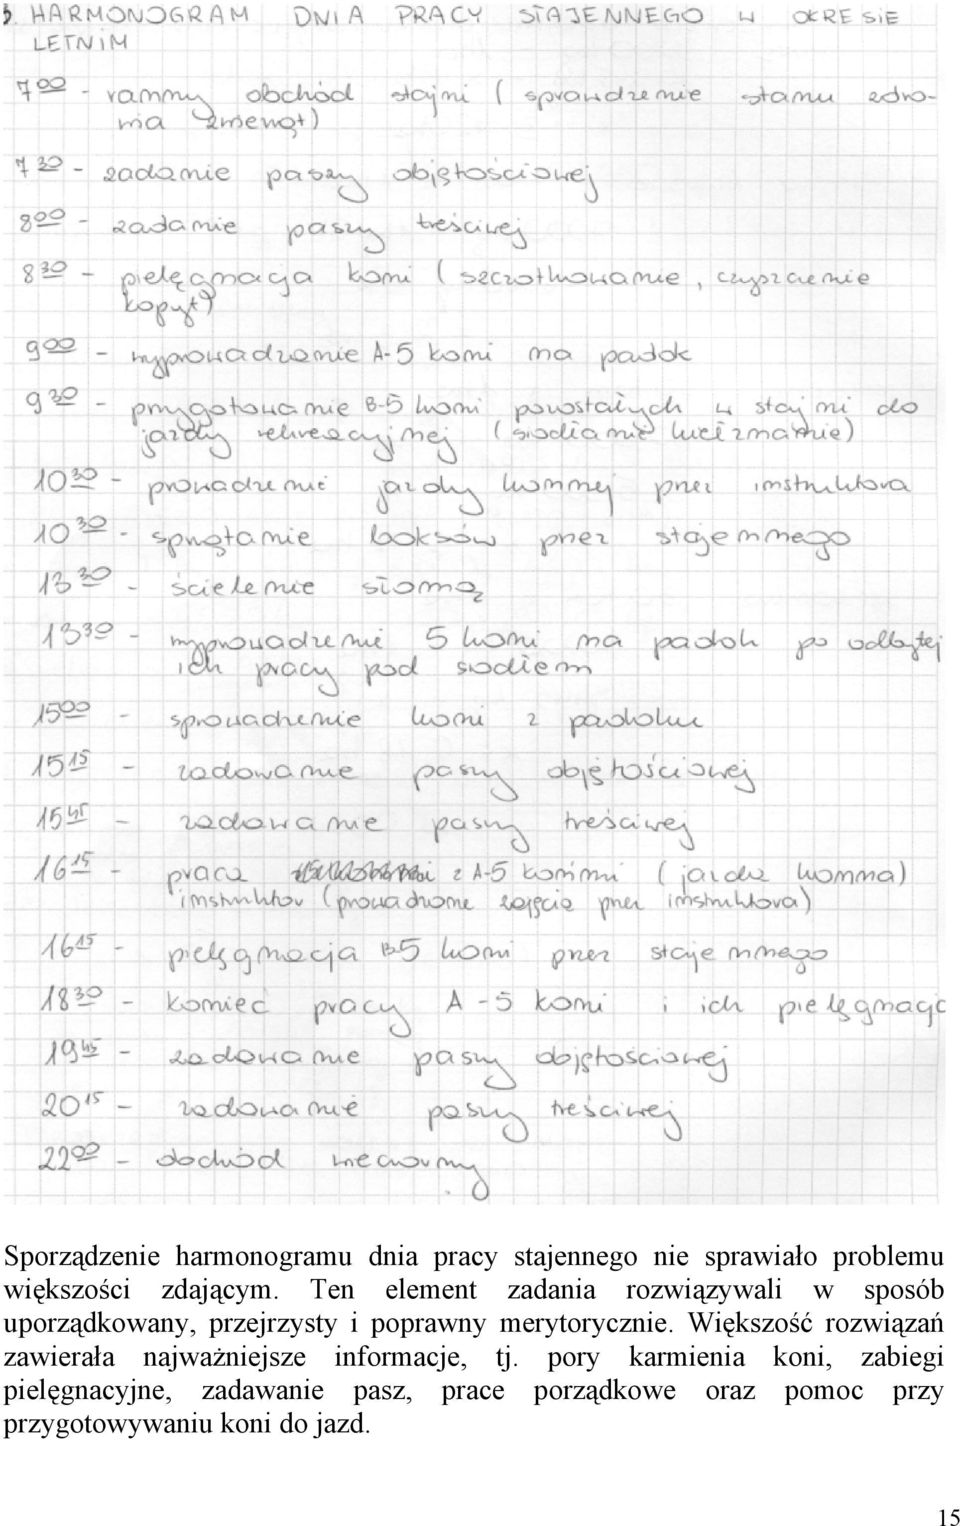 5. HARMONOGRAM DNIA PRACY STAJENNEGO W OKRESIE
LETNIM
7 00 - ranny obchód stajni ( sprawdzenie stanu zdro-
wia zwierząt)
7 30 - zadanie paszy objętościowej
8 00 - zadanie paszy treściwej
8 30 - pielęgnacja koni ( szczotkowanie, czyszczenie
kopyt)
9 00 - wyprowadzanie A-5 koni na padok
9 30 - przygotowanie B-5 koni pozostałych w stajni do
jazdy rekreacyjnej (siodłanie kiełznanie)
10 30 - prowadzenie jazdy konnej przez instruktora
10 30 - sprzątanie boksów przez stajennego
13 30 - ścielenie słomą
13 30 - wyprowadzenie 5 koni na padok po odbytej
ich pracy pod siodłem
15 00 - sprowadzenie koni z padoku
15 15 - zadawanie paszy objętościowej
15 45 - zadawanie paszy treściwej
16 15 - praca z A-5 końmi ( jazda konna)
instruktor (prowadzone zajęcia przez instruktora)
16 15 - pielęgnacja B-5 koni przez stajennego
18 30 - koniec pracy A-5 koni i ich pielęgnacja
19 45 - zadawanie paszy objętościowej
20 15 - zadawanie paszy treściwej
22 00 - obchód wieczorny
Sporządzenie harmonogramu dnia pracy stajennego nie sprawiało problemu
większości zdającym. Ten element zadania rozwiązywali w sposób
uporządkowany, przejrzysty i poprawny merytorycznie. Większość rozwiązań
zawierała najważniejsze informacje, tj. pory karmienia koni, zabiegi
pielęgnacyjne, zadawanie pasz, prace porządkowe oraz pomoc przy
przygotowywaniu koni do jazd.
15